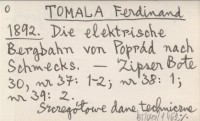 o TOMALA Ferdinand
1892. Die elektrische
Bergbahn von Popråd nach
Schmecks. — Zipser Bote
30, nr 37: 1-2; nr 38: 1;
nr 39: 2.
Szczegółowe dane techniczne